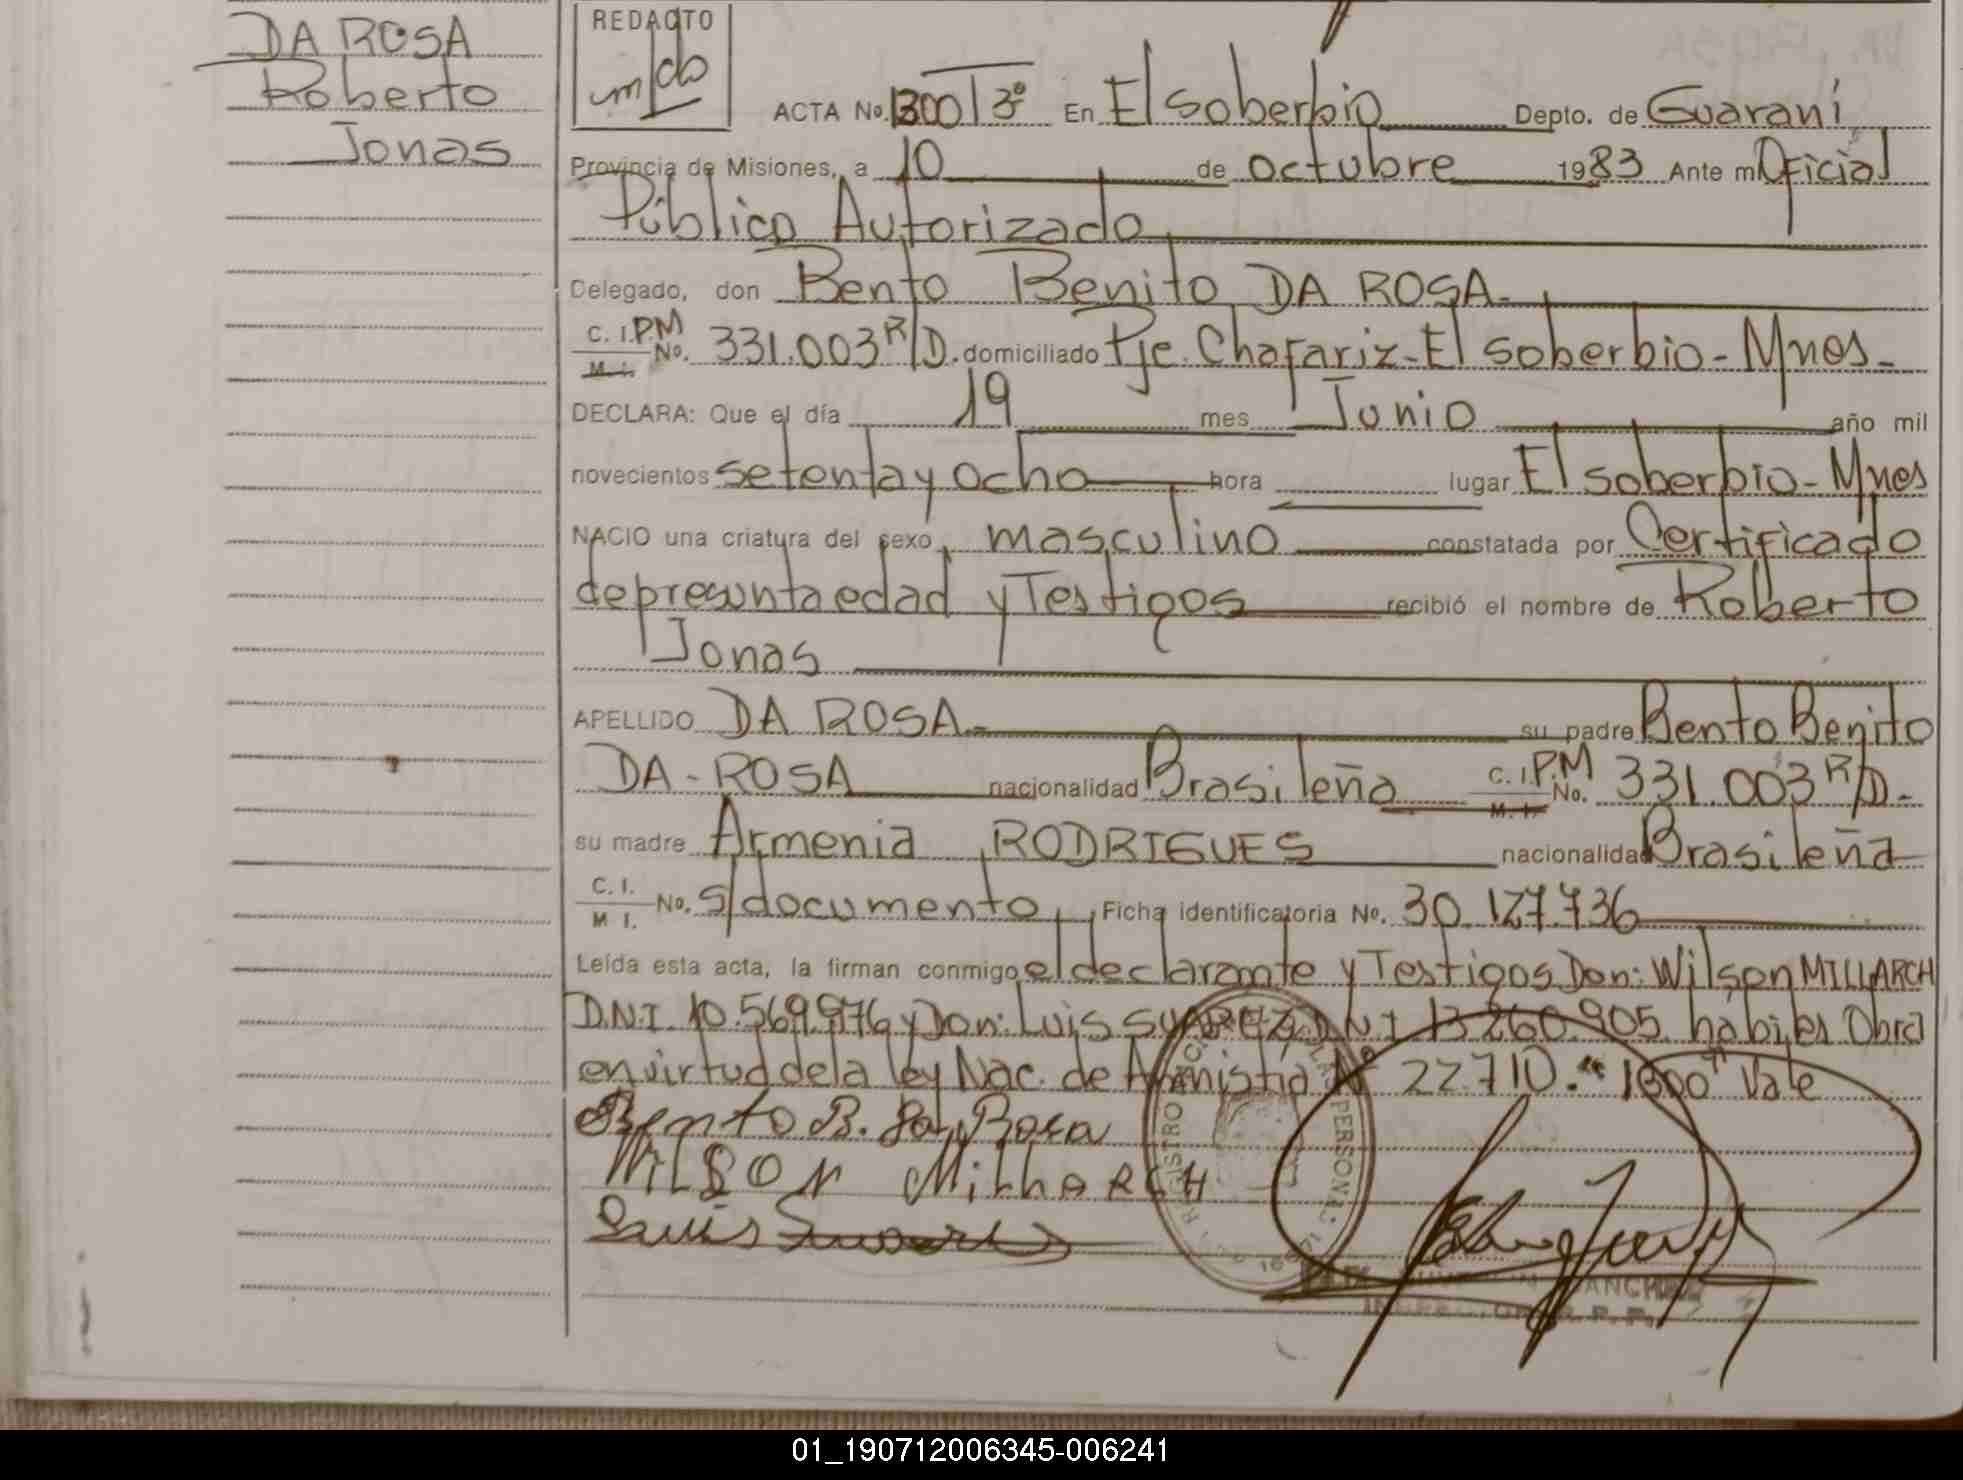 DA ROSA
Roberto
Jonas
REDACTO
ACTA No. 1300 T 3º En El Soberbio Depto. de Guaraní
Provincia de Misiones, a 10 de octubre 1983 Ante mi Oficial
Público Autorizado
Delegado, don Bento Benito DA ROSA.
C. I.P.M M. I. No. 331.003 R/D. domiciliado Pje. Chafariz-El Soberbio-Mnes-
DECLARA: Que el día 19 mes Junio año mil
novecientos setenta y ocho hora lugar El Soberbio-Mnes
NACIO una criatura del sexo masculino constatada por Certificado
de presunta edad y Testigos recibió el nombre de Roberto
Jonas
APELLIDO DA ROSA. su padre Bento Benito
DA-ROSA nacionalidad Brasileña C. I.P.M M. I. No. 331.003 R/D-
su madre Armenia RODRIGUES nacionalidad Brasileña
C. I. M I. No. S/documento, Ficha identificatoria No. 30.127.736
Leída esta acta, la firman conmigo el declarante y Testigos Don: Wilson MILLARCH
D.N.I. 10.569.976 y Don: Luis SUAREZ D.N.I. 13.260.905 habiles Obra
en virtud de la ley Nac. de Amnistia Nº 22.710. "1300" Vale
Bento B. da Rosa
WILSON MILHARCH
Luis
REGISTRO PERSONAS
INSPECTOR R. P. P.
01_190712006345-006241